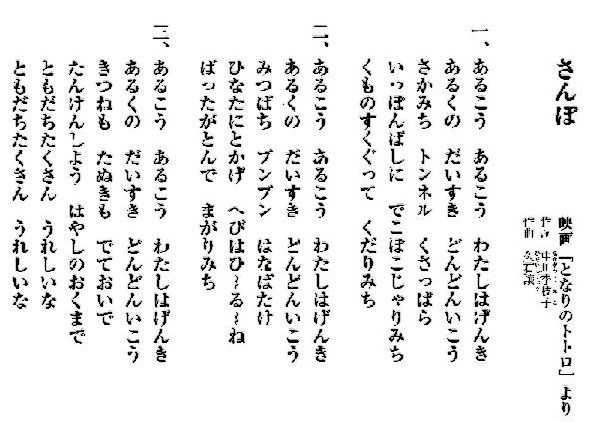 さんぽ
映画「となりのトトロ」より
作詞 中川李枝子
作曲 久石譲
一、あるこう あるこう わたしはげんき
あるくの だいすき どんどんいこう
さかみち トンネル くさっぱら
いっぽんばしに でこぼこじゃりみち
くものすくぐって くだりみち
二、あるこう あるこう わたしはげんき
あるくの だいすき どんどんいこう
みつばち ブンブン はなばたけ
ひなたにとかげ へびはひ〜る〜ね
ばったがとんで まがりみち
三、あるこう あるこう わたしはげんき
あるくの だいすき どんどんいこう
きつねも たぬきも でておいで
たんけんしよう はやしのおくまで
ともだちたくさん うれしいな
ともだちたくさん うれしいな